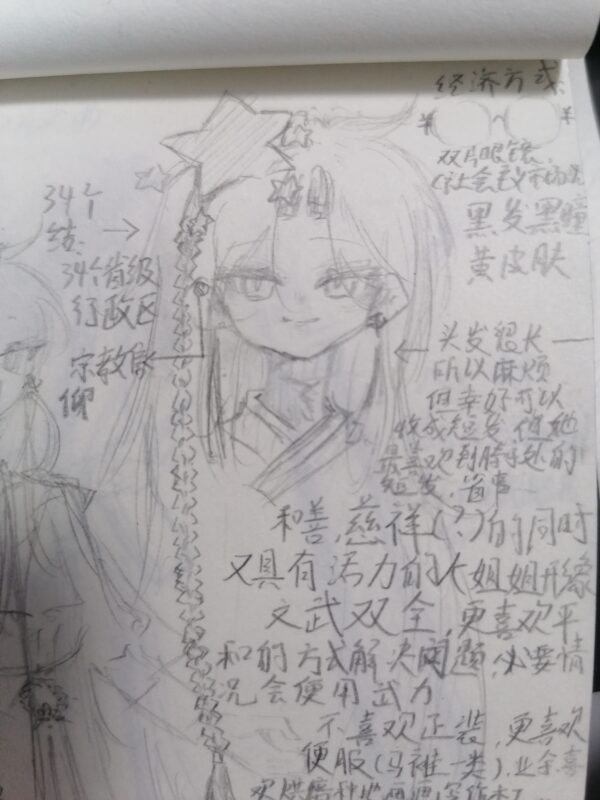 经济方式:
¥ ~ ¥
双片眼镜,
(社会主义
黑发黑瞳
黄皮肤
34个
结:
34个省级
行政区
宗教信
仰
头发超长
所以麻烦
但幸好可以
收成短发,但她
最喜欢到脖子处的
短发,
和善,慈祥(?)的同时
又具有活力的大姐姐形象
文武双全,更喜欢平
和的方式解决问题,必要情
况会使用武力
不喜欢正装,更喜欢
便服(马褂一类),业余喜
欢烘焙种